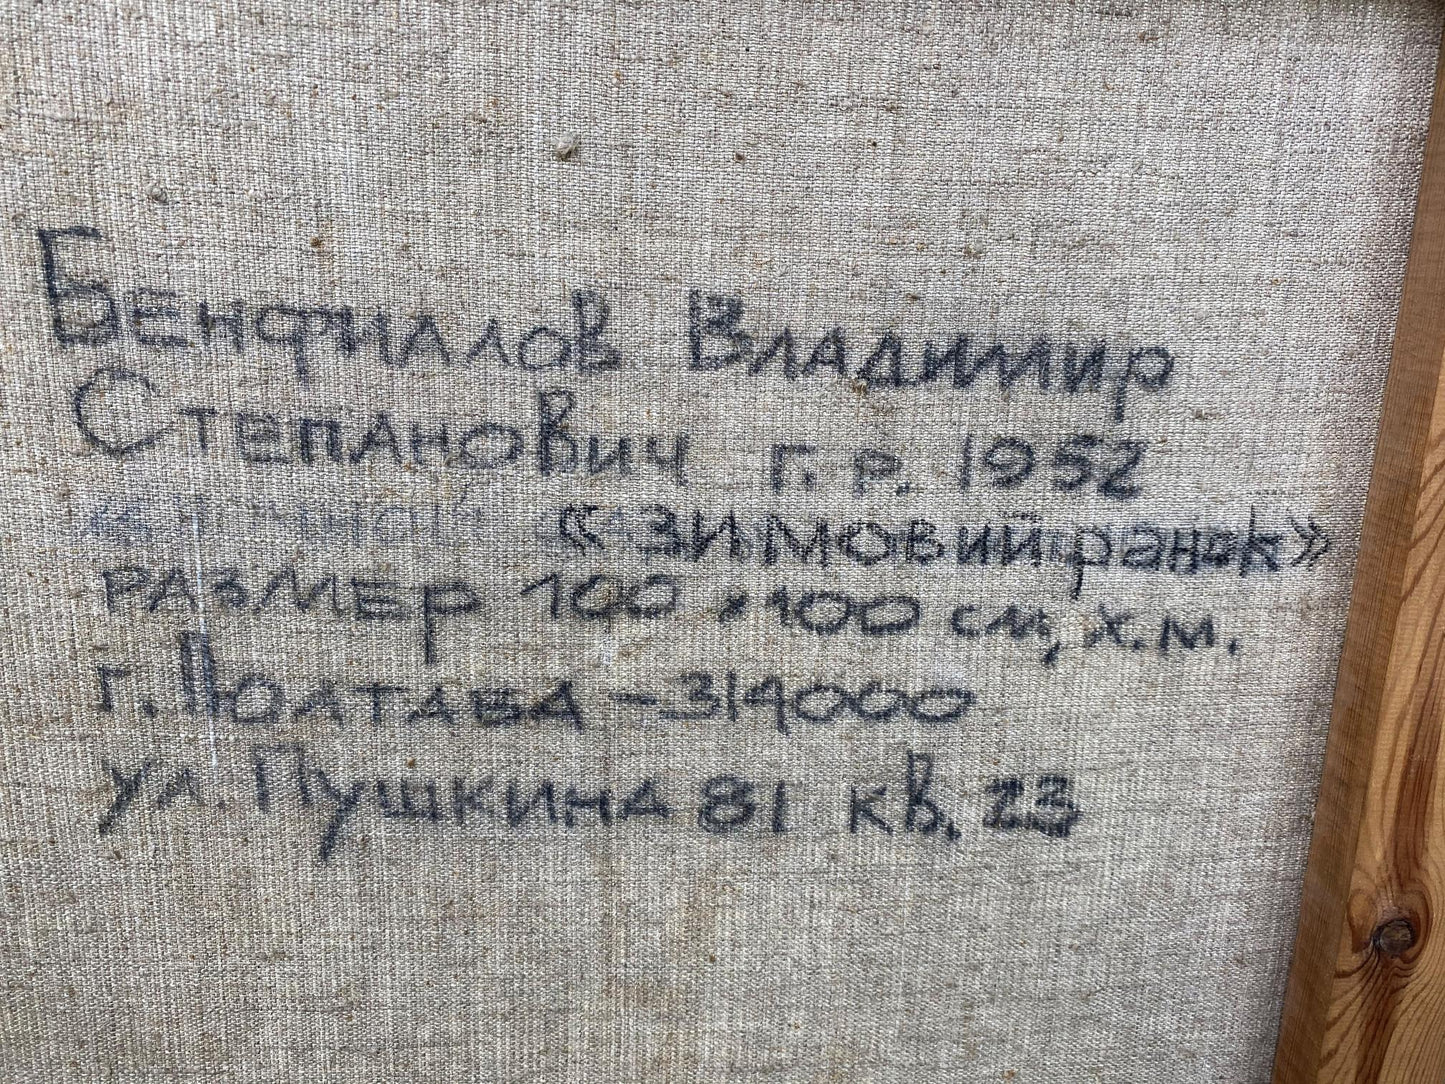 Бенфиалов Владимир
Степанович г.р. 1952
«Зимовий ранок»
размер 100 × 100 см, х.м.
г. Полтава – 314000
ул. Пушкина 81 кв. 23